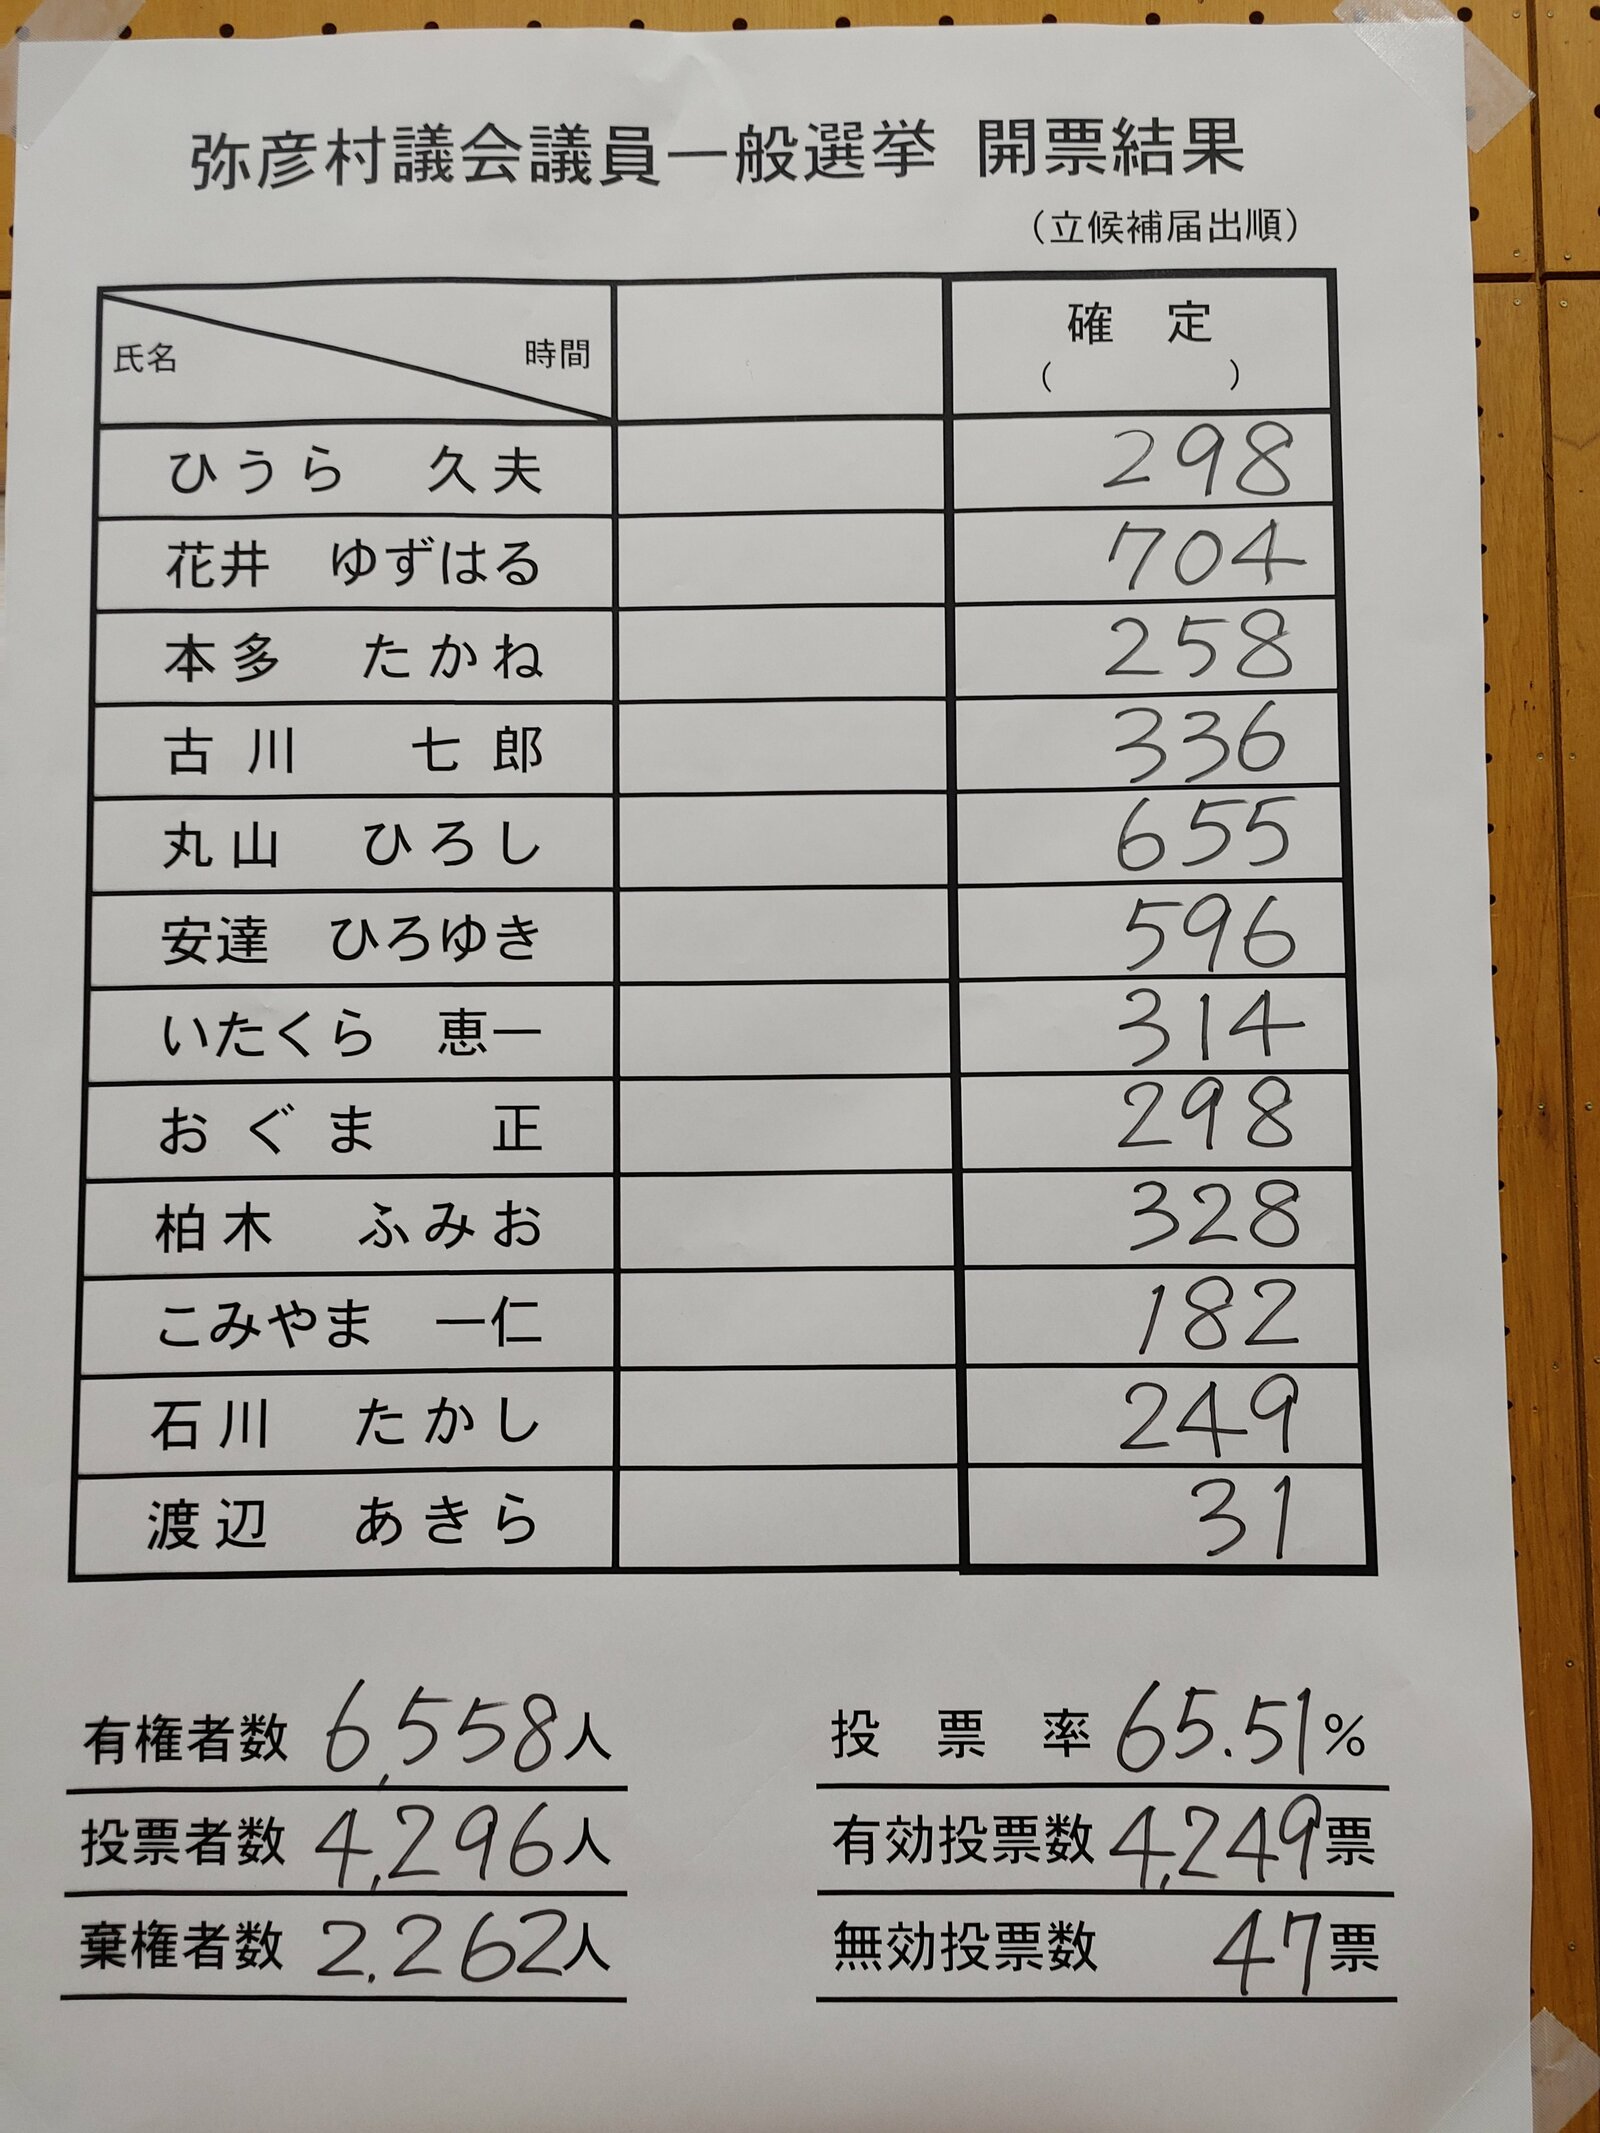 弥彦村議会議員一般選挙 開票結果
（立候補届出順）
氏名 時間 確 定
（ ）
ひうら 久夫 298
花井 ゆずはる 704
本多 たかね 258
古川 七郎 336
丸山 ひろし 655
安達 ひろゆき 596
いたくら 恵一 314
おぐま 正 298
柏木 ふみお 328
こみやま 一仁 182
石川 たかし 249
渡辺 あきら 31
有権者数 6,558人 投票率 65.51%
投票者数 4,296人 有効投票数 4,249票
棄権者数 2,262人 無効投票数 47票